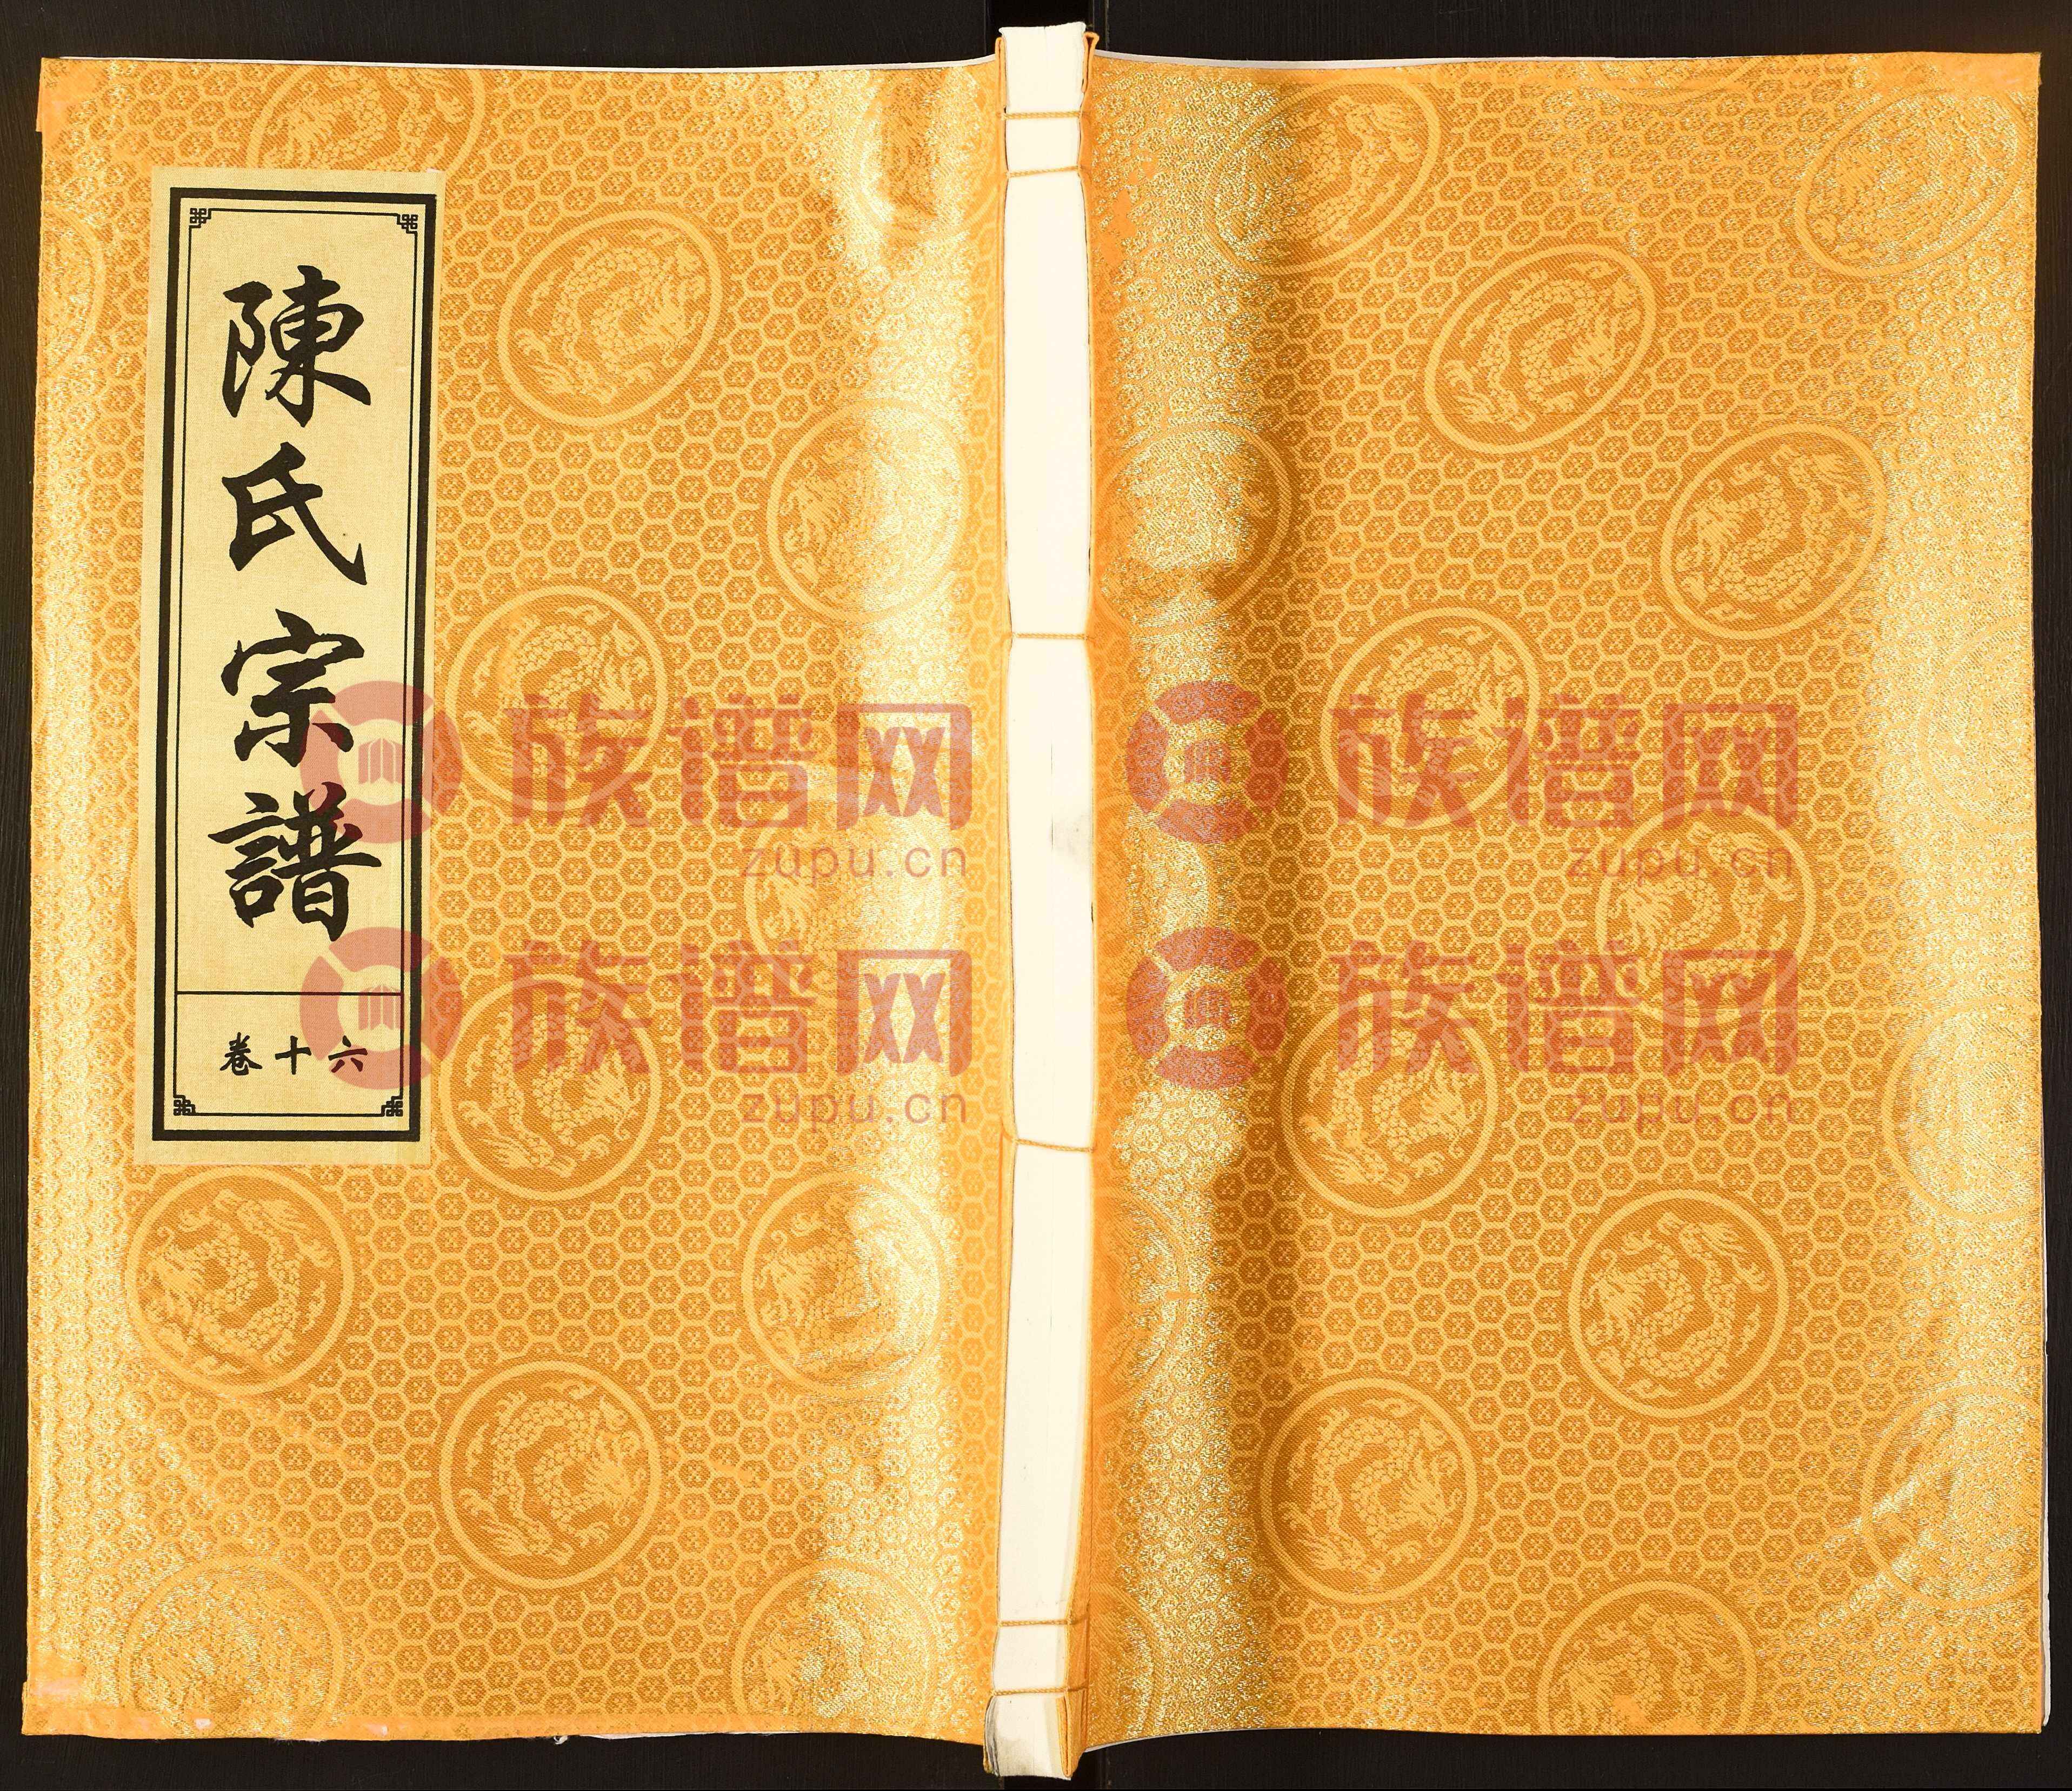 陳氏宗譜
卷十六
族谱网
zupu.cn
族谱网
zupu.cn
族谱网
zupu.cn
族谱网
zupu.cn